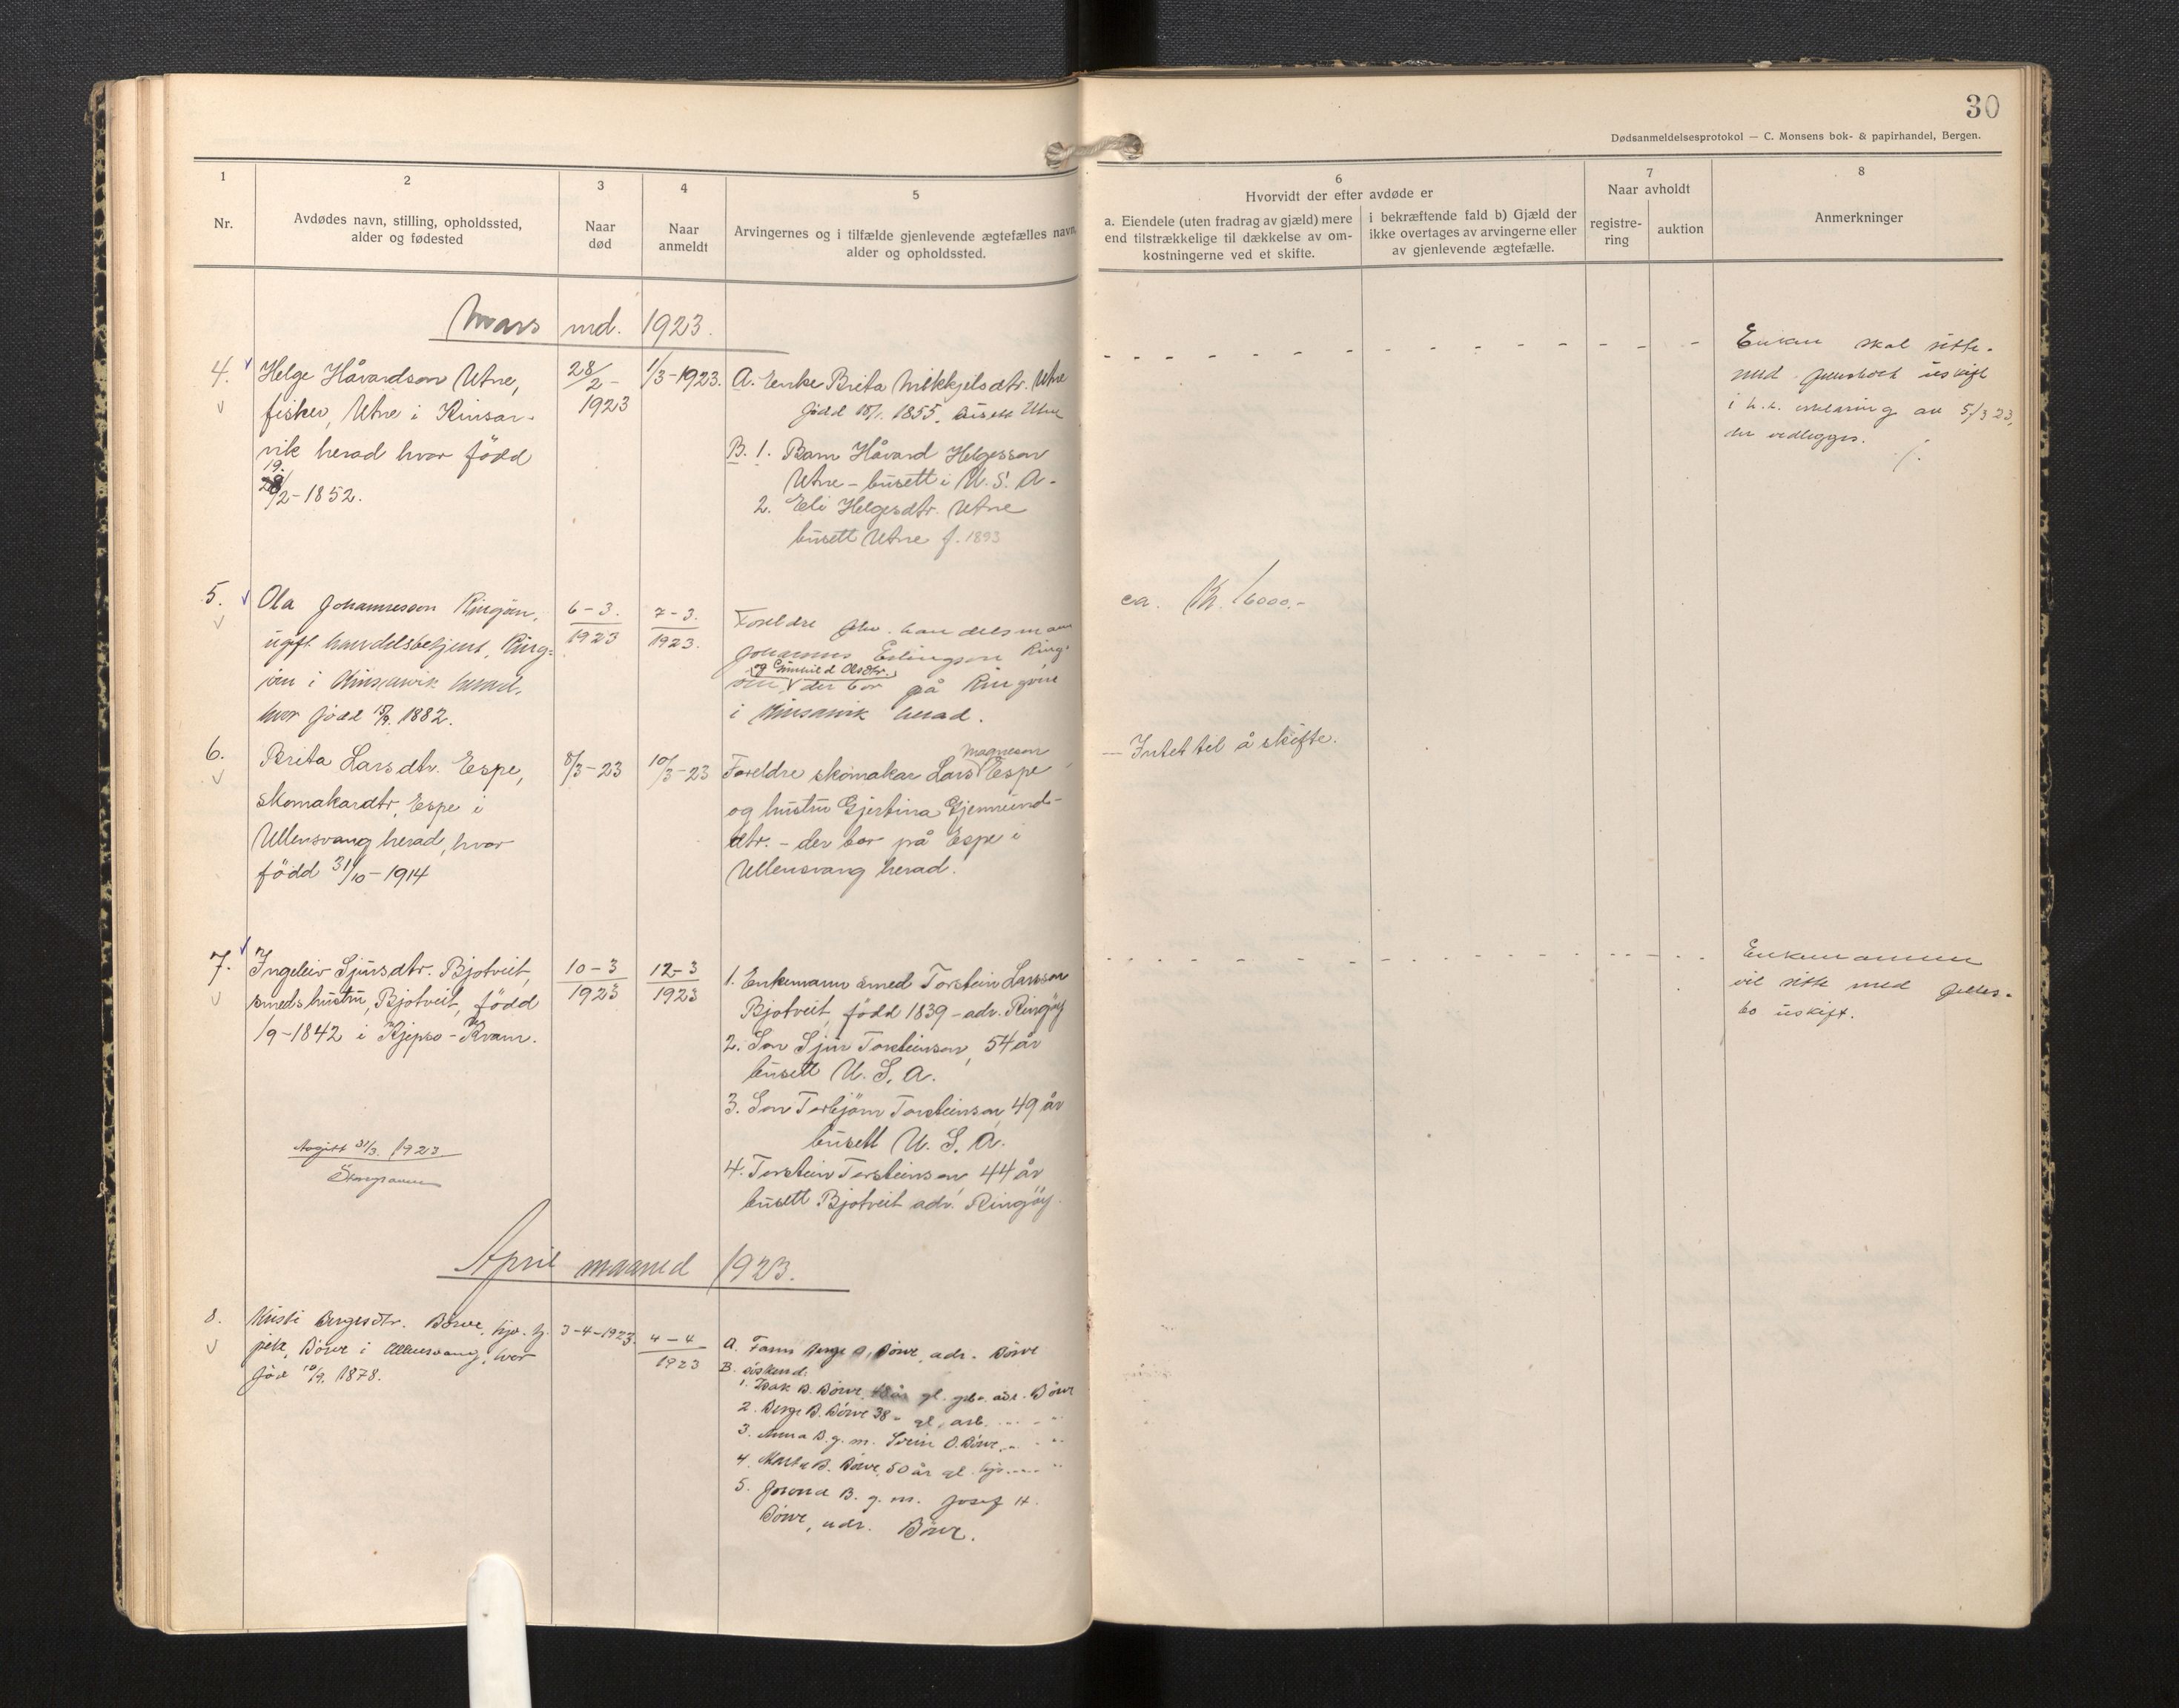 30
Dødsanmeldelsesprotokol — C. Monsens bok- & papirhandel, Bergen.
1
Nr.
2
Avdødes navn, stilling, opholdssted,
alder og fødested
3
Naar
død
4
Naar
anmeldt
5
Arvingernes og i tilfælde gjenlevende ægtefælles navn,
alder og opholdssted.
6
Hvorvidt der efter avdøde er
a. Eiendele (uten fradrag av gjæld) mere
end tilstrækkelige til dækkelse av om-
kostningerne ved et skifte.
i bekræftende fald b) Gjæld der
ikke overtages av arvingerne eller
av gjenlevende ægtefælle.
7
Naar avholdt
registre-
ring
auktion
8
Anmerkninger
Mars md. 1923.
4.
Helge Håvardson Utne,
fisker, Utne i Kinsar-
vik herad hvor född
19.
28/2-1852.
28/2-
1923
1/3-1923.
A. Enke Brita Mikkjelsdtr. Utne
född 15/1. 1855. busett Utne
B. 1. Barn Håvard Helgesson
Utne - busett i U.S.A.
2. Eli Helgesdtr. Utne
busett Utne f. 1893
Enken skal sitte
med uskift
i h.t. erklæring av 5/3 23,
der vedlegges.
5.
Ola Johannesson Ringöen,
ugift handelsbetjent, Ring-
öen i Kinsarvik herad,
hvor född 15/9. 1882.
6-3.
1923
7-3.
1923.
Foreldre fhv. handelsmann
Johannes Erlingson Ring-
og Gunhild Olsdtr.
öen, der bor på Ringöen
i Kinsarvik herad.
ca. Kr. 6000.-
6.
Brita Larsdtr. Espe,
skomakardtr, Espe i
Ullensvang herad, hvor
född 31/10-1914
8/3-23
10/3-23
Magneson
Foreldre skomakar Lars Espe
og hustru Gjertina Gjermund-
dtr. - der bor på Espe i
Ullensvang herad.
— Intet til å skifte.
7.
Ingeleiv Sjursdtr. Bjotveit,
smeds hustru, Bjotveit, född
1/9-1842 i Kjepso-Kvam.
10-3
1923
12-3
1923
1. Enkemann smed Torstein Larsson
Bjotveit, född 1839 - adr. Ringöy
2. Son Sjur Torsteinson, 54 år
busett U.S.A.
3. Son Torbjörn Torsteinson, 49 år
busett U.S.A.
4. Torstein Torsteinson, 44 år
busett Bjotveit adr. Ringöy.
Enkemannen
vil sitte med felles-
bo uskift.
Avgitt 31/3. 1923
April maaned 1923.
8.
Kristi Bergesdtr. Börve,
pike, Börve i Ullensvang, hvor
föd 10/9. 1878.
3-4-1923.
4-4
1923
A. Farm Berge Börve, adr. Börve
B. söskend:
1. Isak B. Börve, 48 år gl. adr. Börve
2. Berge B. Börve 38 " gl. arb. " "
3. Anna B. g. m. Svein O. Börve, " "
4. Marta B. Börve, 50 år gl. " "
5. B. g. m. Josef H.
Börve, adr. Börve.